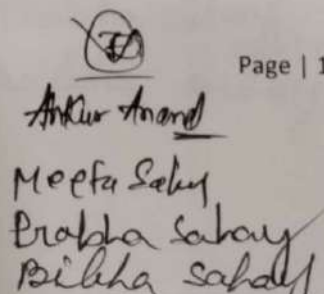 Page | 1
Ankur Anand
Meeta Sahay
Prabha Sahay
Bibha Sahay